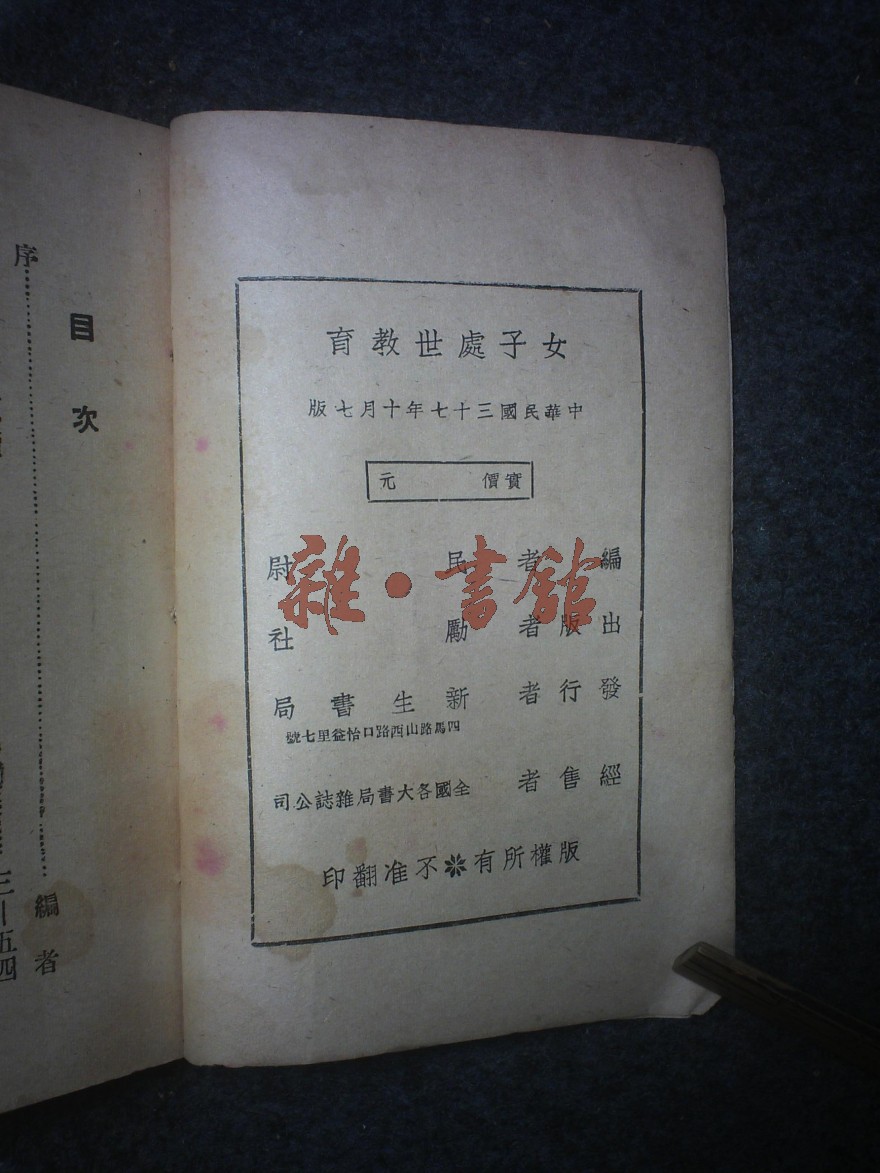 女子處世教育
中華民國三十七年十月七版
實價 元
編者 民尉
出版者 勵社
發行者 新生書局
四馬路山西路口怡益里七號
經售者 全國各大書局雜誌公司
版權所有 不准翻印
雜·書館
目次
序
編者
三—五四